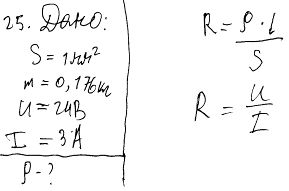 25. Дано:
S = 1 мм²
m = 0,176 кг
U = 24 В
I = 3 А
ρ - ?
R = ρ · l / S
R = U / I